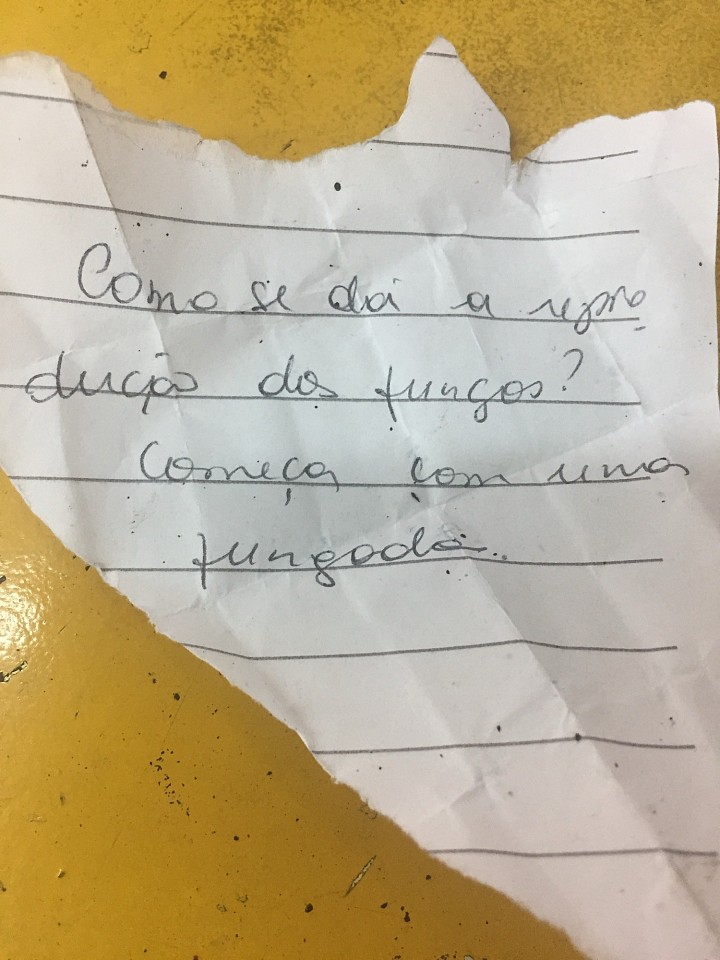 Como se dá a repro
dução dos fungos?
Começa com uma
fungada..